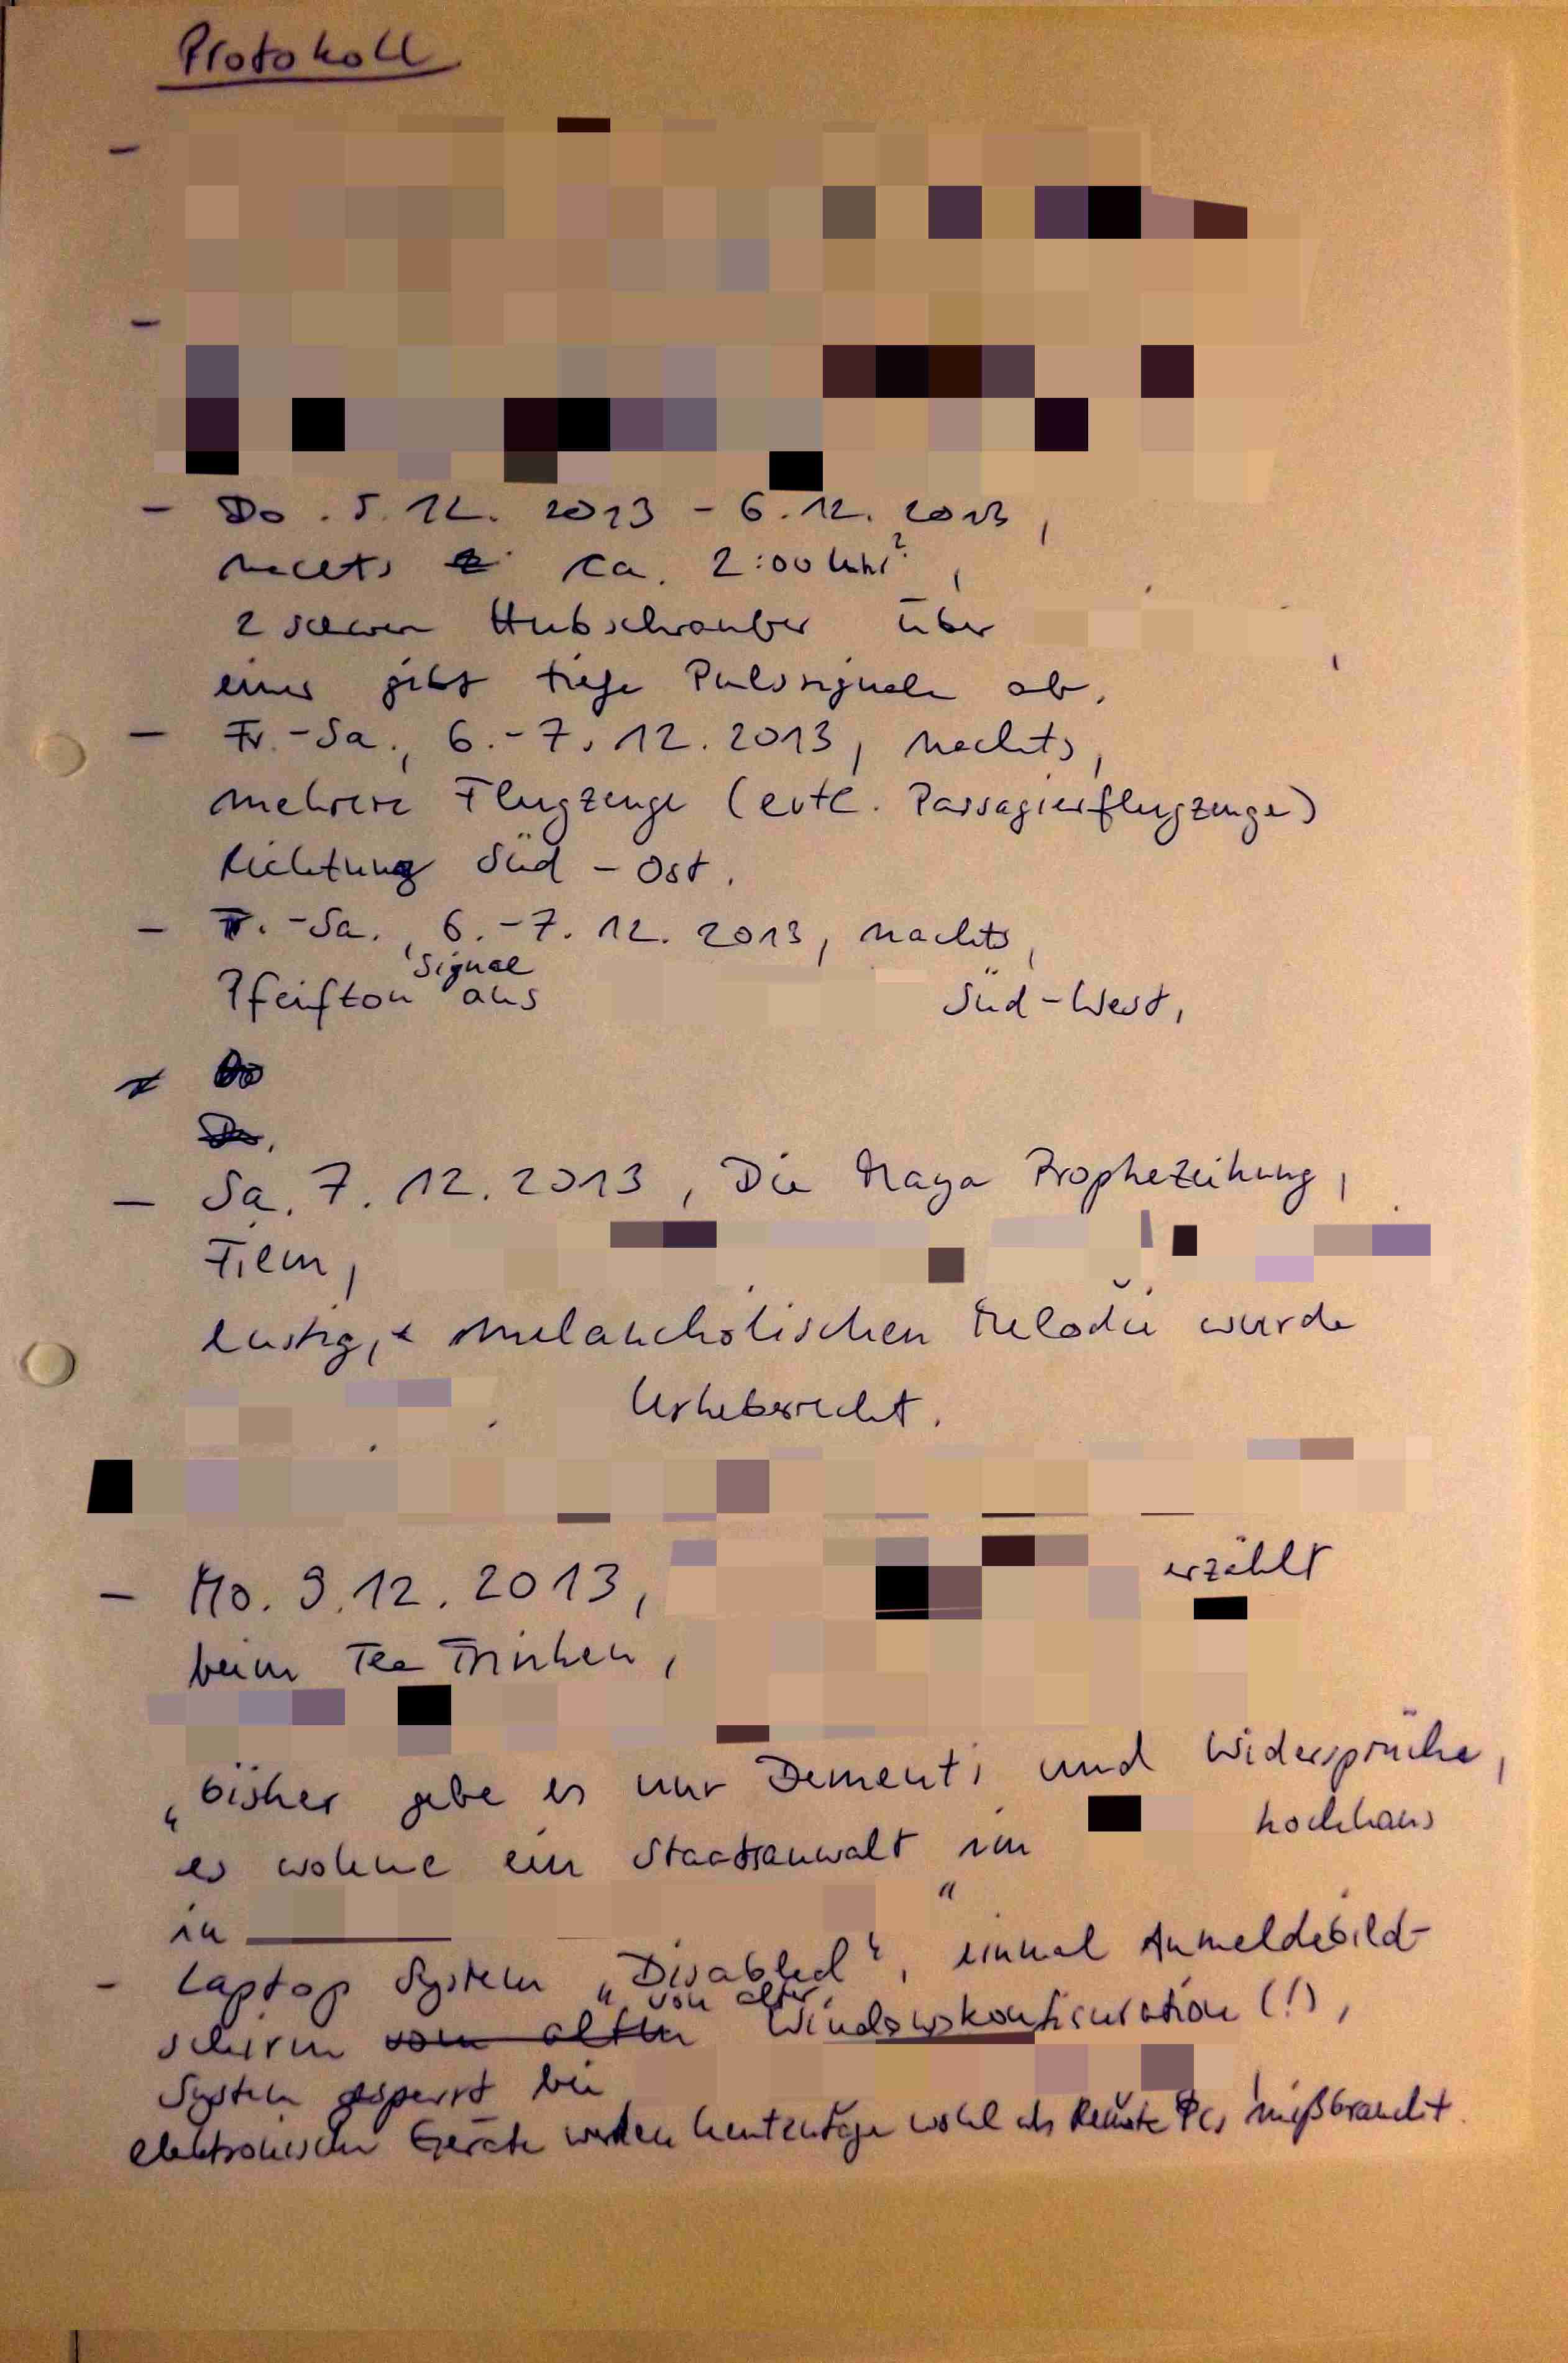 Protokoll
- Do. 5.12. 2013 - 6.12. 2013,
nachts ca. 2:00 Uhr?,
2 schwere Hubschrauber über
einer gibt tiefe Pulssignale ab.
- Fr.-Sa., 6.-7.12.2013, nachts,
mehrere Flugzeuge (evtl. Passagierflugzeuge)
Richtung Süd-Ost.
- Fr.-Sa., 6.-7.12.2013, nachts,
Signal
Pfeifton aus Süd-West,
- Sa. 7.12.2013, Die Maya Prophezeihung,
Film,
lustig, melancholischen Melodie wurde
Urheberrecht.
- Mo. 9.12.2013, erzählt
beim Tee Trinken,
„bisher gebe es nur Dementi und Widersprüche,
es wohne ein Staatsanwalt im hochhaus
in "
- Laptop System „Disabled“, einmal Anmeldebild-
von alter
schirm Windowskonfiguration (!),
System gesperrt bei
elektronische Geräte werden heutzutage wohl als Remote PCs mißbraucht.